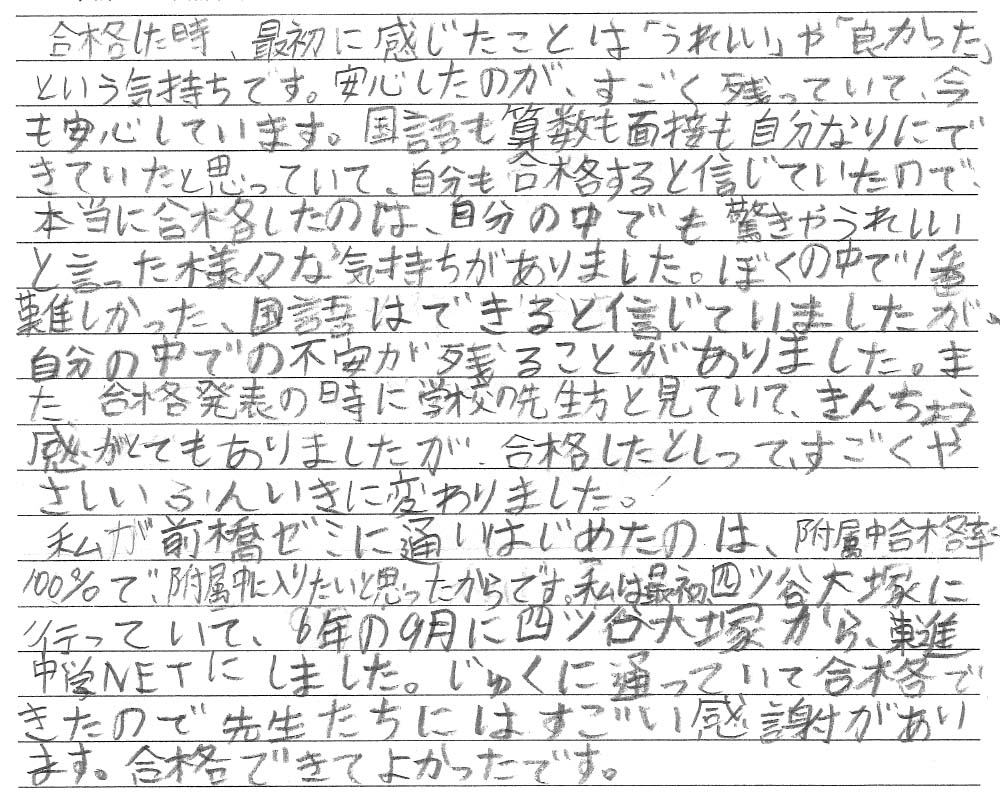 合格した時、最初に感じたことは「うれしい」や「良かった」
という気持ちです。安心したのが、すごく残っていて、今
も安心しています。国語も算数も面接も自分なりにで
きていたと思っていて、自分も合格すると信じていたので、
本当に合格したのは、自分の中でも驚きやうれしい
と言った様々な気持ちがありました。ぼくの中で1番
難しかった、国語はできると信じていましたが、
自分の中での不安が残ることがありました。ま
た、合格発表の時に学校の先生方と見ていて、きんちょう
感がとてもありましたが、合格したとしってすごくや
さしいふんいきに変わりました。
私が前橋ゼミに通いはじめたのは、附属中合格率
100%で、附属中に入りたいと思ったからです。私は最初、四ツ谷大塚に
行っていて、6年の9月に四ツ谷大塚から、東進
中学NETにしました。じゅくに通っていて合格で
きたので先生たちにはすごい感謝があり
ます。合格できてよかったです。